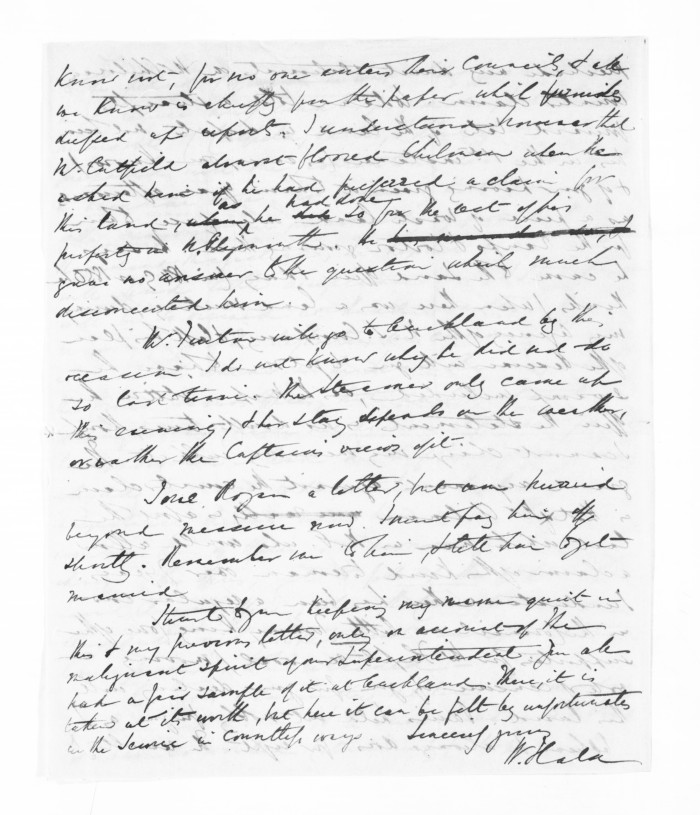 know not, for no one enters their Council, & all
we know is chiefly from the paper which furnishes
dressed up reports. I understand however that
Mr. Catfield almost floored Chilman when he
asked him if he had preferred a claim for
this land, as he had done so for the rest of his
property in N. Plymouth. He
gave no answer to the question which much
disconcerted him.
Mr. Turton will go to Auckland by this
occasion. I do not know why he did not do
so last time. The steamer only came up
this evening, & her stay depends on the weather,
or rather the Captain's views of it.
I owe Rogan a letter, but am hurried
beyond measure now. I must pay him off
shortly. Remember me to him & tell him to get
married.
I trust to your keeping my name quiet in
this & my previous letter, only on account of the
malignant spirit of our Superintendent. You all
had a fair sample of it at Auckland. There, it is
taken at its worth, but here it can be felt by unfortunates
in the Service in countless ways. Sincerely yours
W. Halse